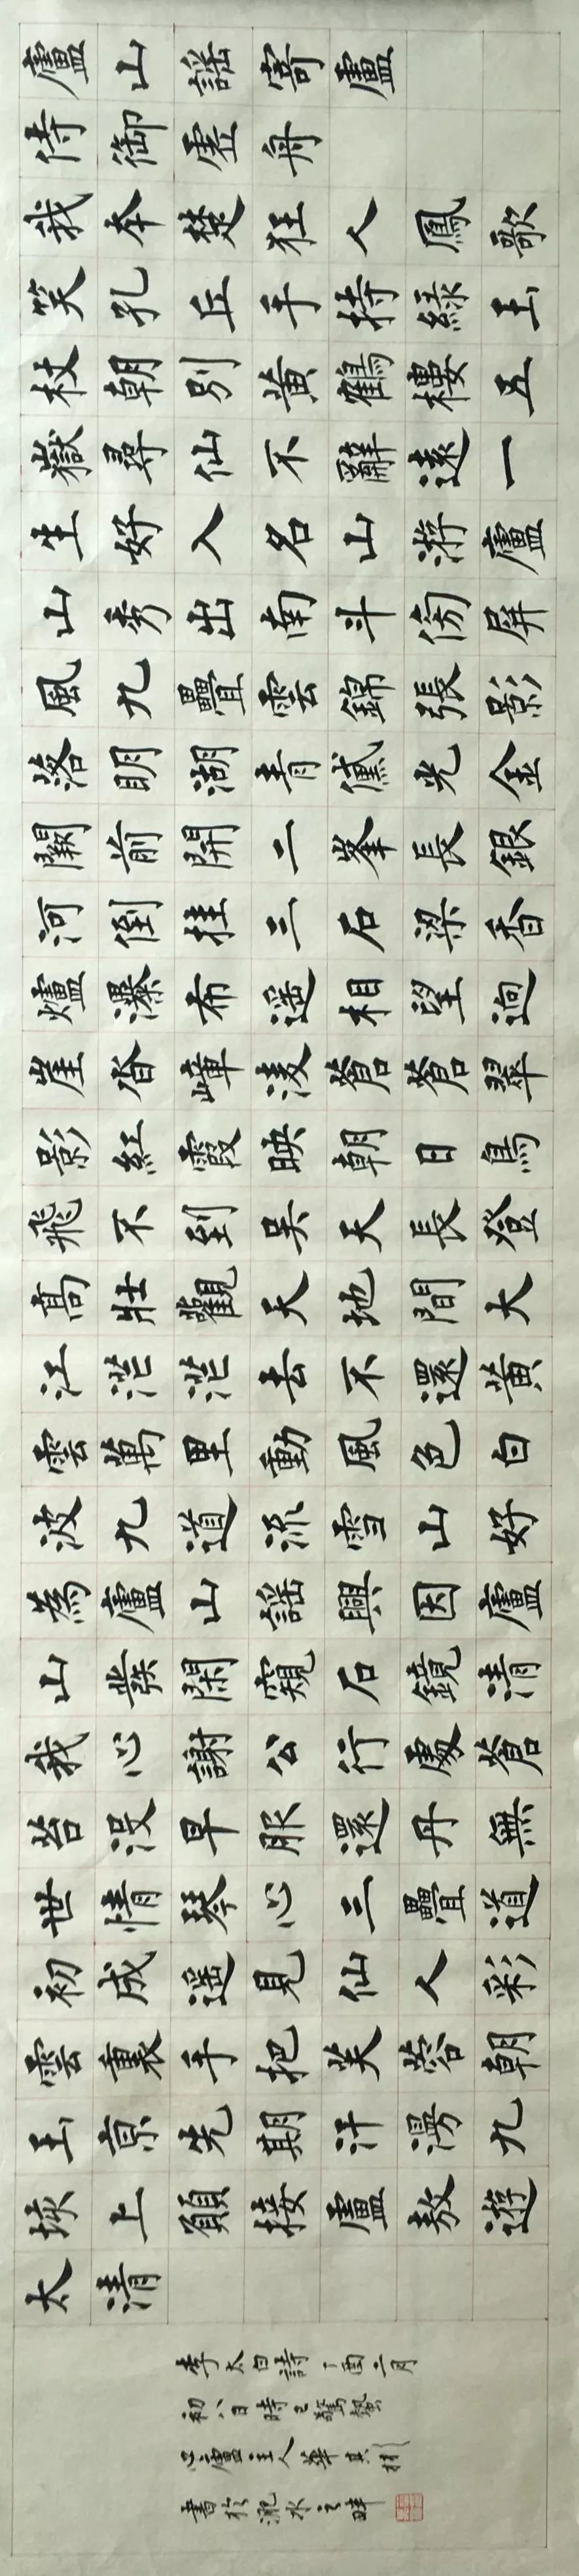 廬山謠寄盧
侍御虛舟
我本楚狂人鳳歌
笑孔丘手持綠玉
杖朝別黃鶴樓五
嶽尋仙不辭遠一
生好入名山游廬
山秀出南斗傍屏
風九疊雲錦張影
落明湖青黛光金
闕前開二峯長銀
河倒挂三石梁香
爐瀑布遙相望迴
崖沓嶂淩蒼蒼翠
影紅霞映朝日鳥
飛不到吳天長登
高壯觀天地間大
江茫茫去不還黃
雲萬里動風色白
波九道流雪山好
為廬山謠興因廬
山發閑窺石鏡清
我心謝公行處蒼
苔沒早服還丹無
世情琴心三疊道
初成遙見仙人彩
雲裏手把芙蓉朝
玉京先期汗漫九
垓上願接盧敖遊
太清
李太白詩丁酉二月
初八日時已驚蟄
心廬主人華其彬
書於淝水之畔